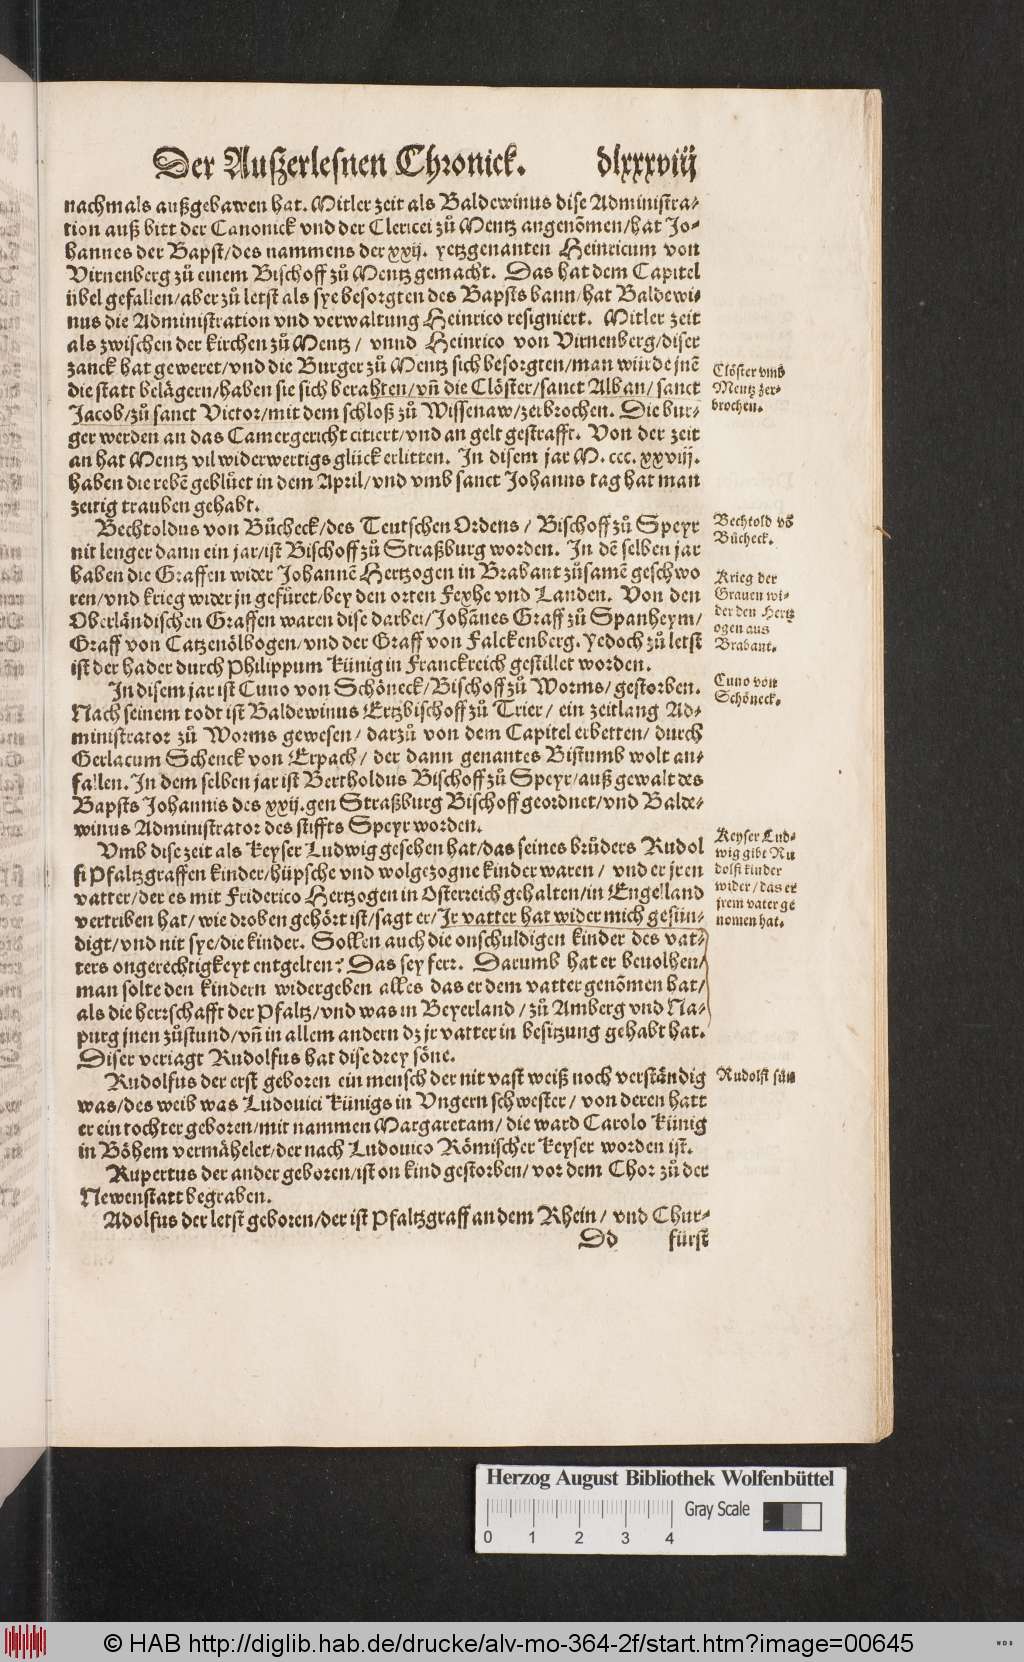 Der Außerlesnen Chronick. dlxxxviij
nachmals außgebawen hat. Mitler zeit als Baldewinus dise Administra-
tion auß bitt der Canonick vnd der Clericei zů Mentz angenõmen/hat Jo-
hannes der Bapst/des nammens der xxij. yetzgenanten Heinricum von
Virnenberg zů einem Bischoff zů Mentz gemacht. Das hat dem Capitel
übel gefallen/aber zů letst als sye besorgten des Bapsts bann/hat Baldewi-
nus die Administration vnd verwaltung Heinrico resigniert. Mitler zeit
als zwischen der kirchen zů Mentz / vnnd Heinrico von Virnenberg/diser
zanck hat geweret/vnd die Burger zů Mentz sich besorgten/man würde jnẽ
die statt belägern/haben sie sich berahten/vñ die Clöster/sanct Alban/ sanct
Jacob/zů sanct Victor/mit dem schloß zů Wissenaw/zerbrochen. Die bur-
ger werden an das Camergericht citiert/vnd an gelt gestrafft. Von der zeit
an hat Mentz vil widerwertigs glück erlitten. In disem jar M. ccc. xxviij.
haben die rebẽ geblüet in dem April/vnd vmb sanct Johanns tag hat man
zeitig trauben gehabt.
Clöster vmb
Mentz zer-
brochen.
Bechtoldus von Bůcheck/des Teutschen Ordens / Bischoff zů Speyr
nit lenger dann ein jar/ist Bischoff zů Straßburg worden. In dẽ selben jar
haben die Graffen wider Johannẽ Hertzogen in Brabant zůsamẽ geschwo
ren/vnd krieg wider jn gefüret/bey den orten Feyhe vnd Landen. Von den
Oberländischen Graffen waren dise darbei/Johãnes Graff zů Spanheym/
Graff von Catzenölbogen/vnd der Graff von Falckenberg. Yedoch zů letst
ist der hader durch Philippum Künig in Franckreich gestillet worden.
Bechtold võ
Bůcheck.
Krieg der
Grauen wi-
der den Hertz
ogen aus
Brabant.
In disem jar ist Cuno von Schöneck/Bischoff zů Worms/gestorben.
Nach seinem todt ist Baldewinus Ertzbischoff zů Trier/ ein zeitlang Ad-
ministrator zů Worms gewesen/ darzů von dem Capitel erbetten/ durch
Gerlacum Schenck von Erpach/ der dann genantes Bistumb wolt an-
fallen. In dem selben jar ist Bertholdus Bischoff zů Speyr/auß gewalt des
Bapsts Johannis des xxij.gen Straßburg Bischoff geordnet/vnd Balde-
winus Administrator des stiffts Speyr worden.
Cuno von
Schöneck.
Vmb dise zeit als Keyser Ludwig gesehen hat/das seines brůders Rudol
fi Pfaltzgraffen kinder/hüpsche vnd wolgezogne kinder waren / vnd er jren
vatter/der es mit Friderico Hertzogen in Osterreich gehalten/in Engelland
vertriben hat/ wie droben gehört ist/sagt er/Jr vatter hat wider mich gesün-
digt/vnd nit sye/die kinder. Sollen auch die onschuldigen kinder des vat-
ters ongerechtigkeyt entgelten? Das sey ferr. Darumb hat er beuolhen/
man solte den kindern widergeben alles das er dem vatter genõmen hat/
als die herrschafft der Pfaltz/vnd was in Beyerland / zů Amberg vnd Na-
purg jnen zůstund/vñ in allem andern dz jr vatter in besitzung gehabt hat.
Diser veriagt Rudolfus hat dise drey söne.
Keyser Lud-
wig gibt Ru
dolfi kinder
wider/das er
jrem vater ge
nomen hat.
Rudolfus der erst geboren ein mensch der nit vast weiß noch verständig
was/des weib was Ludouici Künigs in Vngern schwester/ von deren hatt
er ein tochter geboren/mit nammen Margaretam/ die ward Carolo Künig
in Böhem vermähelet/der nach Ludouico Römischer Keyser worden ist.
Rudolfi sün
Rupertus der ander geboren/ist on kind gestorben/ vor dem Chor zů der
Newenstatt begraben.
Adolfus der letst geboren/der ist Pfaltzgraff an dem Rhein/ vnd Chur-
Dd fürst
Herzog August Bibliothek Wolfenbüttel
0 1 2 3 4
Gray Scale
© HAB http://diglib.hab.de/drucke/alv-mo-364-2f/start.htm?image=00645